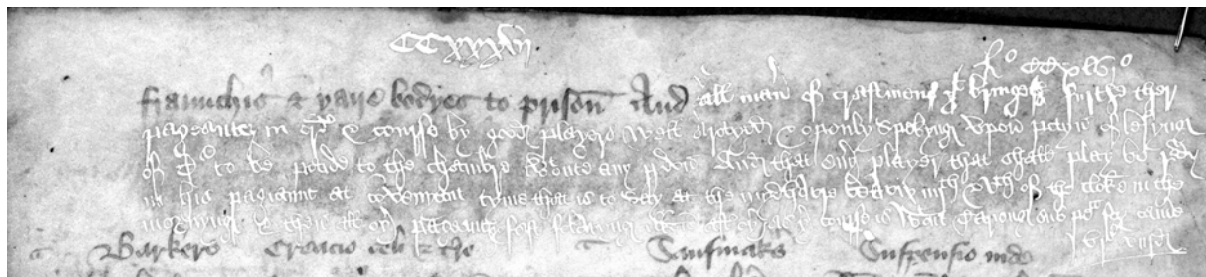 CCxxxvij
fo CCxlvjo
fraunchis & þaire bodyes to prison And all maner of craftmen þt bringeth furthe ther
pageantez in ordr & course by good players well arayed & openly spekyng vpon payn of lesyng
of C s to be paide to the chambre without any pardon And that euery player that shall play be redy
in his pagiaunt at convenyant tyme that is to say at the mydhowre betwix iiijth & vth of the cloke in the
mornyng & then all oyer pageantz fast folowyng ilkon after oyer as yer course is without tarieng sub pena fac camere
vj s viij d
Barkers Creacio celi & the Caufmakers Suffensio iude